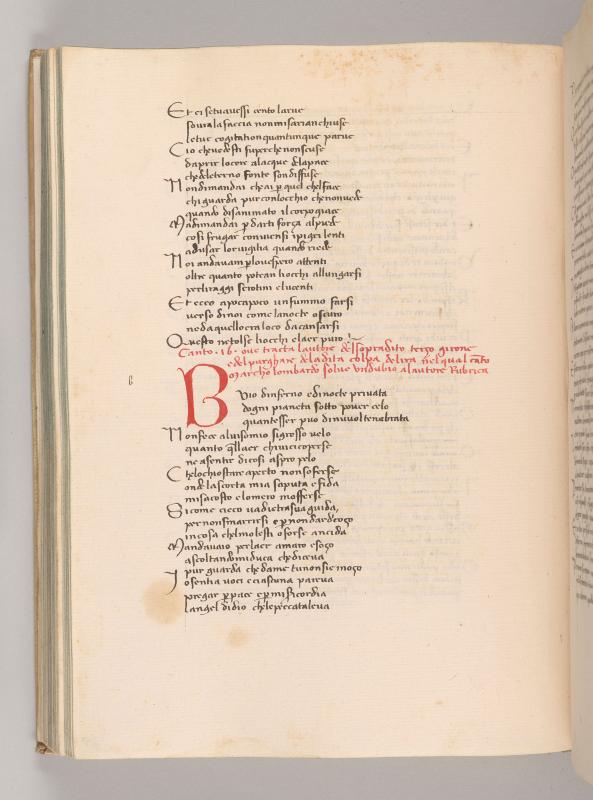 Et ei setuavessi cento larue
soura la faccia nonmisarian chiuse
le tue cogitation quantunque parue
Cio che vedesti fu perche non scuse
daprir lo core alacque dela pace
che deleterno fonte son diffuse
Non dimandai che ai per quel che lface
chi guarda pur con locchio che non uede
quando disanimato il corpo giace
Ma dimandai per darti força al piede
cosi frugar conviensi ipigri lenti
ad usar lor vigilia quando riede
Noi andavam per louespero attenti
oltre quanto potean liocchi allungarsi
per li raggi serotini e lucenti
Et ecco a poco a poco un fummo farsi
verso di noi come la nocte oscuro
ne da quello era loco da cansarsi
Questo ne tolse liocchi e laer puro
Canto .16. oue tracta lauthe del sopradito terço girone
e del purghare de la dita colpa de lira nel qual cato
Marcho lombardo solue un dubio al autore Rubrica
B
Uio dinferno e di nocte privata
dogni pianeta sotto pouer celo
quantesser puo di nuvol tenebrata
Non fece al uiso mio si grosso uelo
quanto quellaer chiui ci coperse
ne a sentir di cosi aspro pelo
Che lochio stare aperto non soferse
onde la scorta mia saputa e fida
mi sacosto e lomero mofferse
Si come cieco ua dietra sua guida
per non smarrirsi e per non dar de coço
in cosa chel molesti o forse ancida
Mandavaio per laer amaro e soço
ascoltando mi duca che diceva
pur guarda che da me tu non sie moço
Io sentia uoci e ciascuna pareua
pregar per pace e per misicordia
langel di dio che le peccata leua